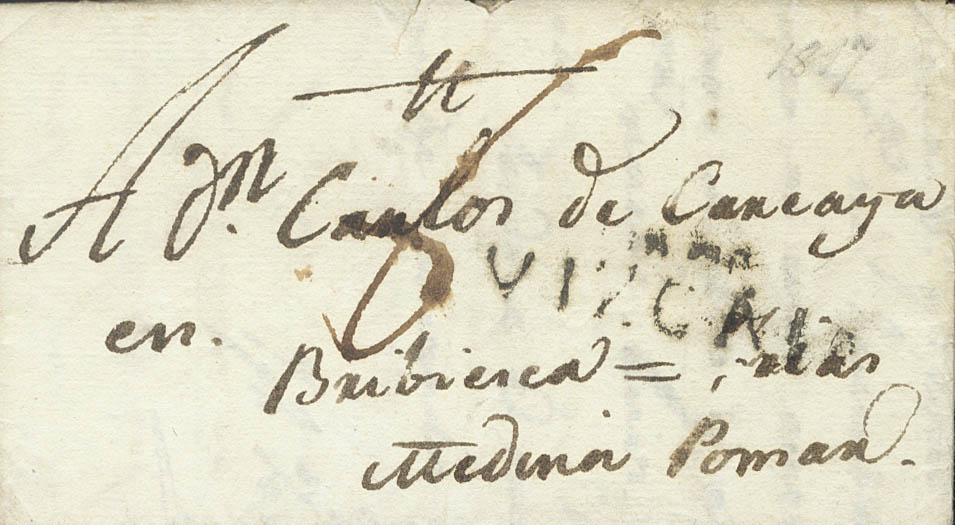 1817
A Dn. Carlos de Cuncaya
6
VIZCAIA
en.
Bribiesca =
Medina Pomar.